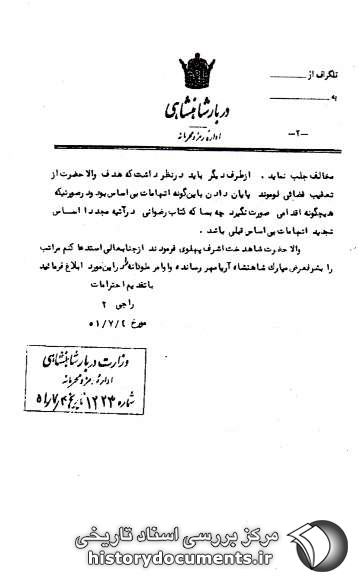 تلگراف از
به
دربار شاهنشاهی
اداره رمز و محرمانه
-۲-
مخالف جلب نماید . ازطرف دیگر باید درنظر داشت که هدف والاحضرت از
تعقیب قضائی لوموند پایان دادن باین‌گونه اتهامات بی‌اساس بود و درصورتیکه
هیچگونه اقدامی صورت نگیرد چه بسا که کتاب رضوانی درآتیه مجددا اساس
تجدید اتهامات بی‌اساس قبلی باشد .
والاحضرت شاهدخت اشرف پهلوی فرمودند ازجنابعالی استدعا کنم مراتب
را بشرفعرض مبارک شاهنشاه آریامهر رسانده و اوامر ملوکانه را دراین‌مورد ابلاغ فرمائید
باتقدیم احترامات
راجی ۲
مورخ ۵۱/۷/۲
وزارت دربار شاهنشاهی
اداره رمز و محرمانه
شماره ۱۲۲۳ تاریخ ۵۱/۷/۴
مرکز بررسی اسناد تاریخی
historydocuments.ir